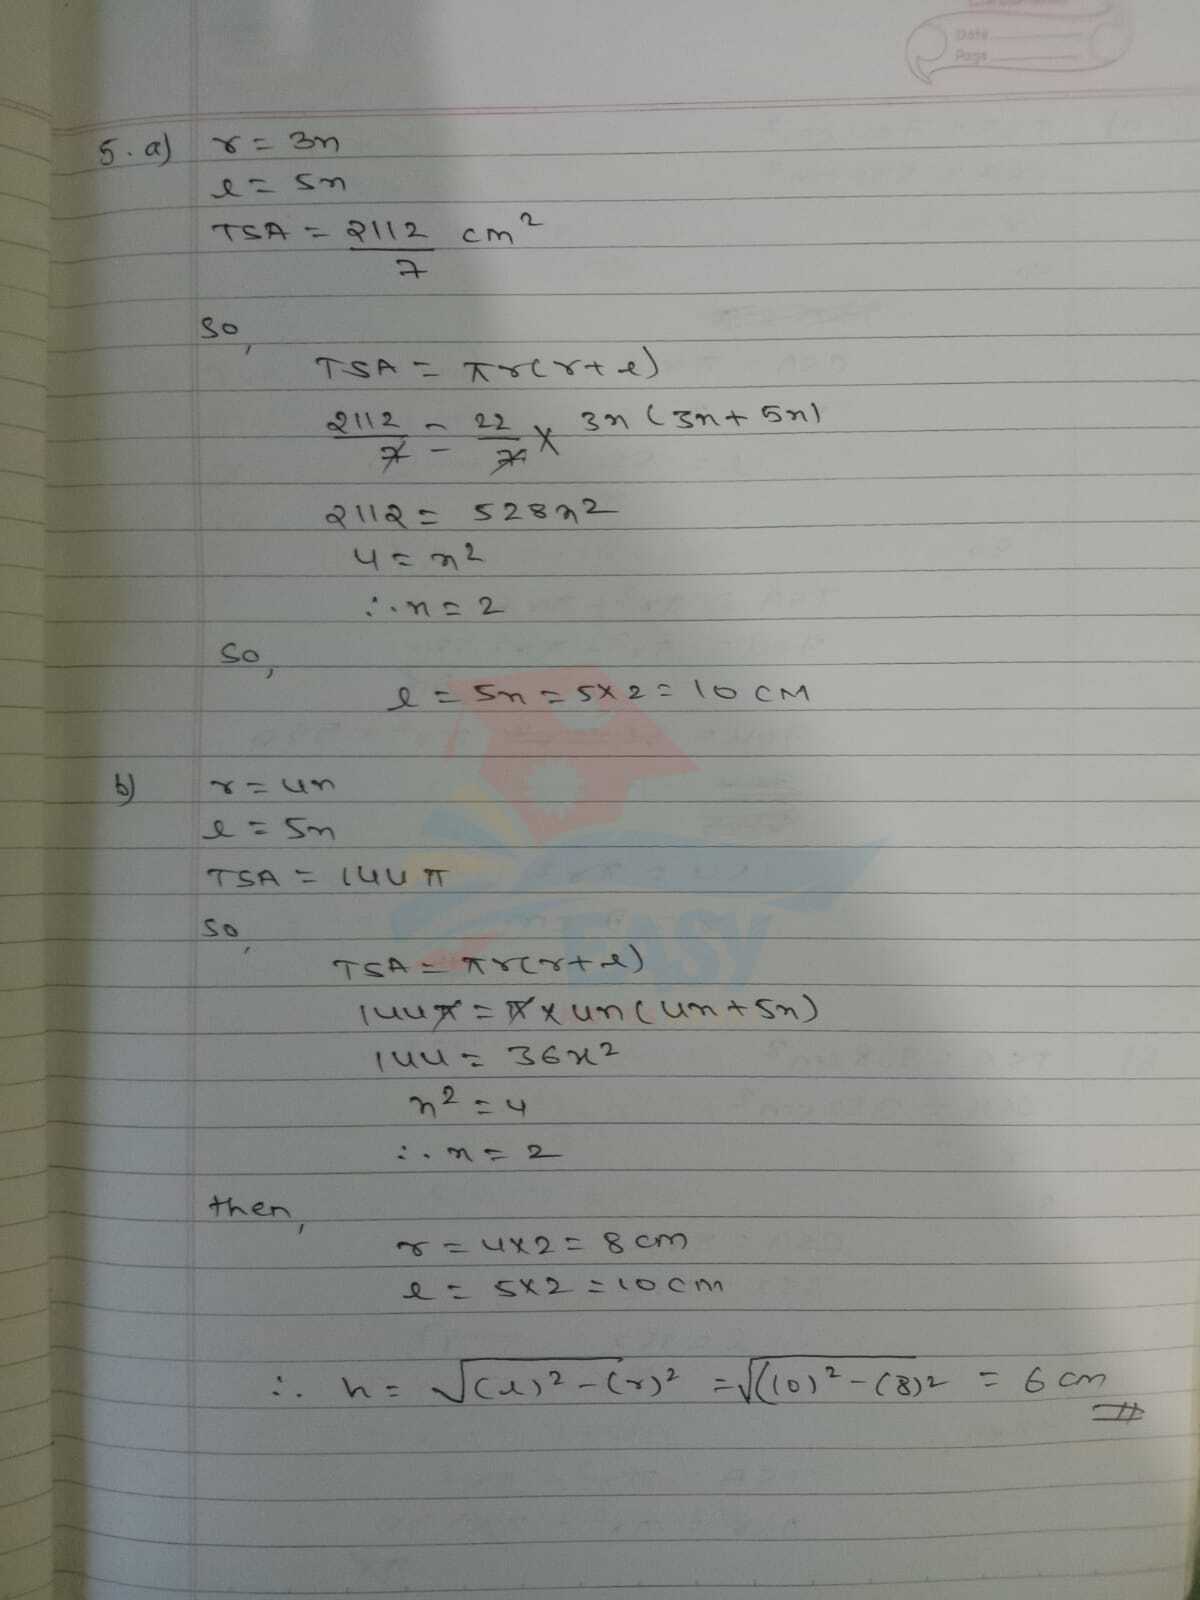 Date
Page
5. a) r = 3x
l = 5x
TSA = 2112/7 cm²
So,
TSA = πr(r+l)
2112/7 = 22/7 × 3x (3x + 5x)
2112 = 528x²
4 = x²
∴ x = 2
So,
l = 5x = 5×2 = 10 CM
b) r = 4x
l = 5x
TSA = 144 π
So,
TSA = πr(r+l)
144π = π × 4x (4x + 5x)
144 = 36x²
x² = 4
∴ x = 2
then,
r = 4×2 = 8 cm
l = 5×2 = 10 cm
∴ h = √(l)² - (r)² = √(10)² - (8)² = 6 cm
EASY